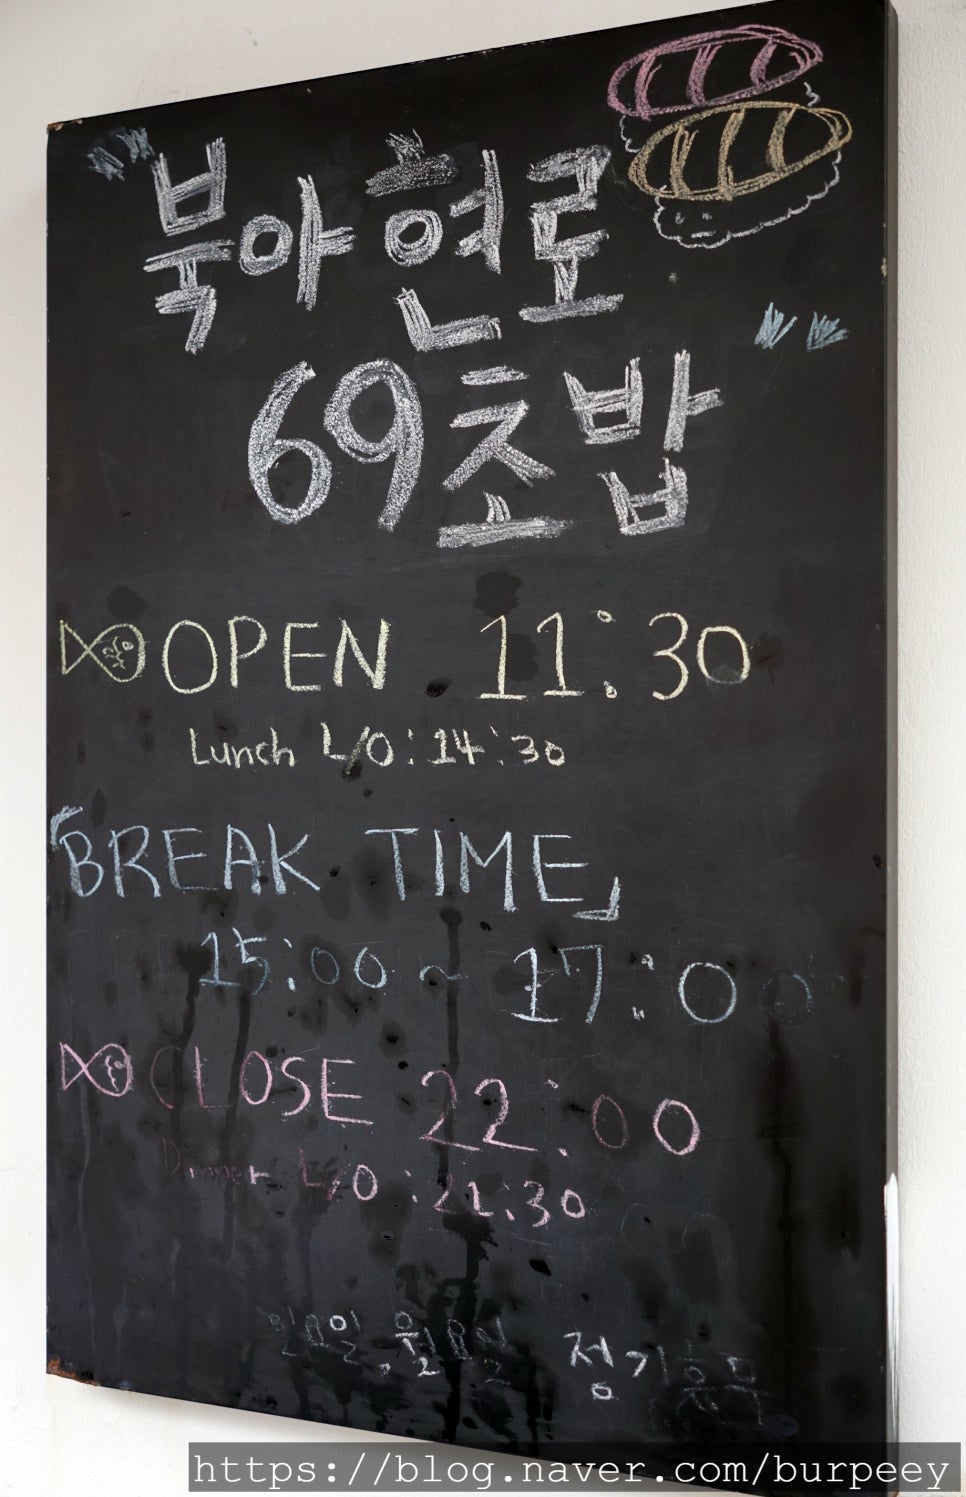 "북아현로
69초밥"
OPEN 11:30
Lunch L/O:14:30
「BREAK TIME」
15:00 ~ 17:00
CLOSE 22:00
Dinner L/O:21:30
일요일, 월요일 정기휴무
https://blog.naver.com/burpeey